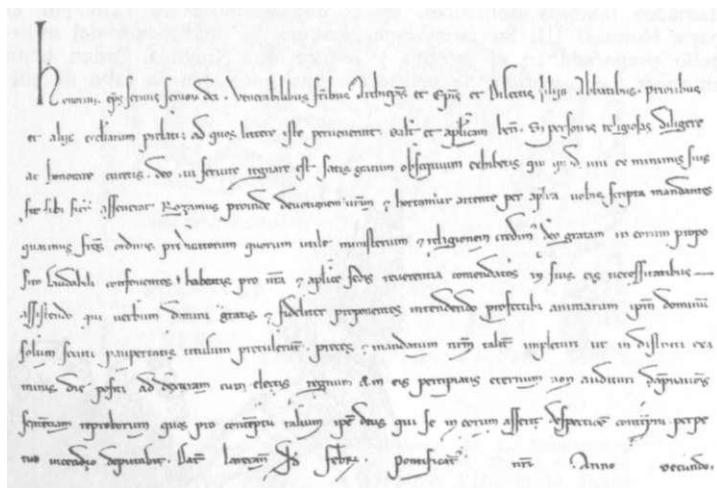 Honorius eps servus servoru dei. Venerabilibus fribus Archiepis et Epis et Dilectis filijs Abbatibus. prioribus
et alijs ecclarum prelatis ad quos littere iste pervenerint salt et aplicam ben. Si personas religiosas diligere
ac honorare curetis. deo cui servire regnare est satis gratum obsequium exhibetis qui quod uni ex minimis suis
fit sibi fieri asseverat Rogamus proinde devotionem vram et hortamur attente per aplica vobis scripta mandantes
quatinus fres ordinis predicatorum quorum utile ministerium et religionem credim deo gratam in eorum propo
sito laudabili confoventes habeatis pro nra et aplice sedis reverentia comendatos in suis eis necessitatibus
assistendo qui verbum domini gratis et fideliter proponentes intendendo profectibus animarum ipm dominum
solum secuti paupertatis titulum pretulerunt. preces et mandatum nrm taliter impleturi ut in districti exa
minis die positi ad dexteram cum electis regnum cum eis percipiatis eternum non audituri dampnationis
sententiam reproborum quos pro contemptu talium ipse deus qui se in eorum asserit despectione contempni perpe
tuo incendio deputabit. Dat Lateran febr. Pontificat nri Anno secundo.